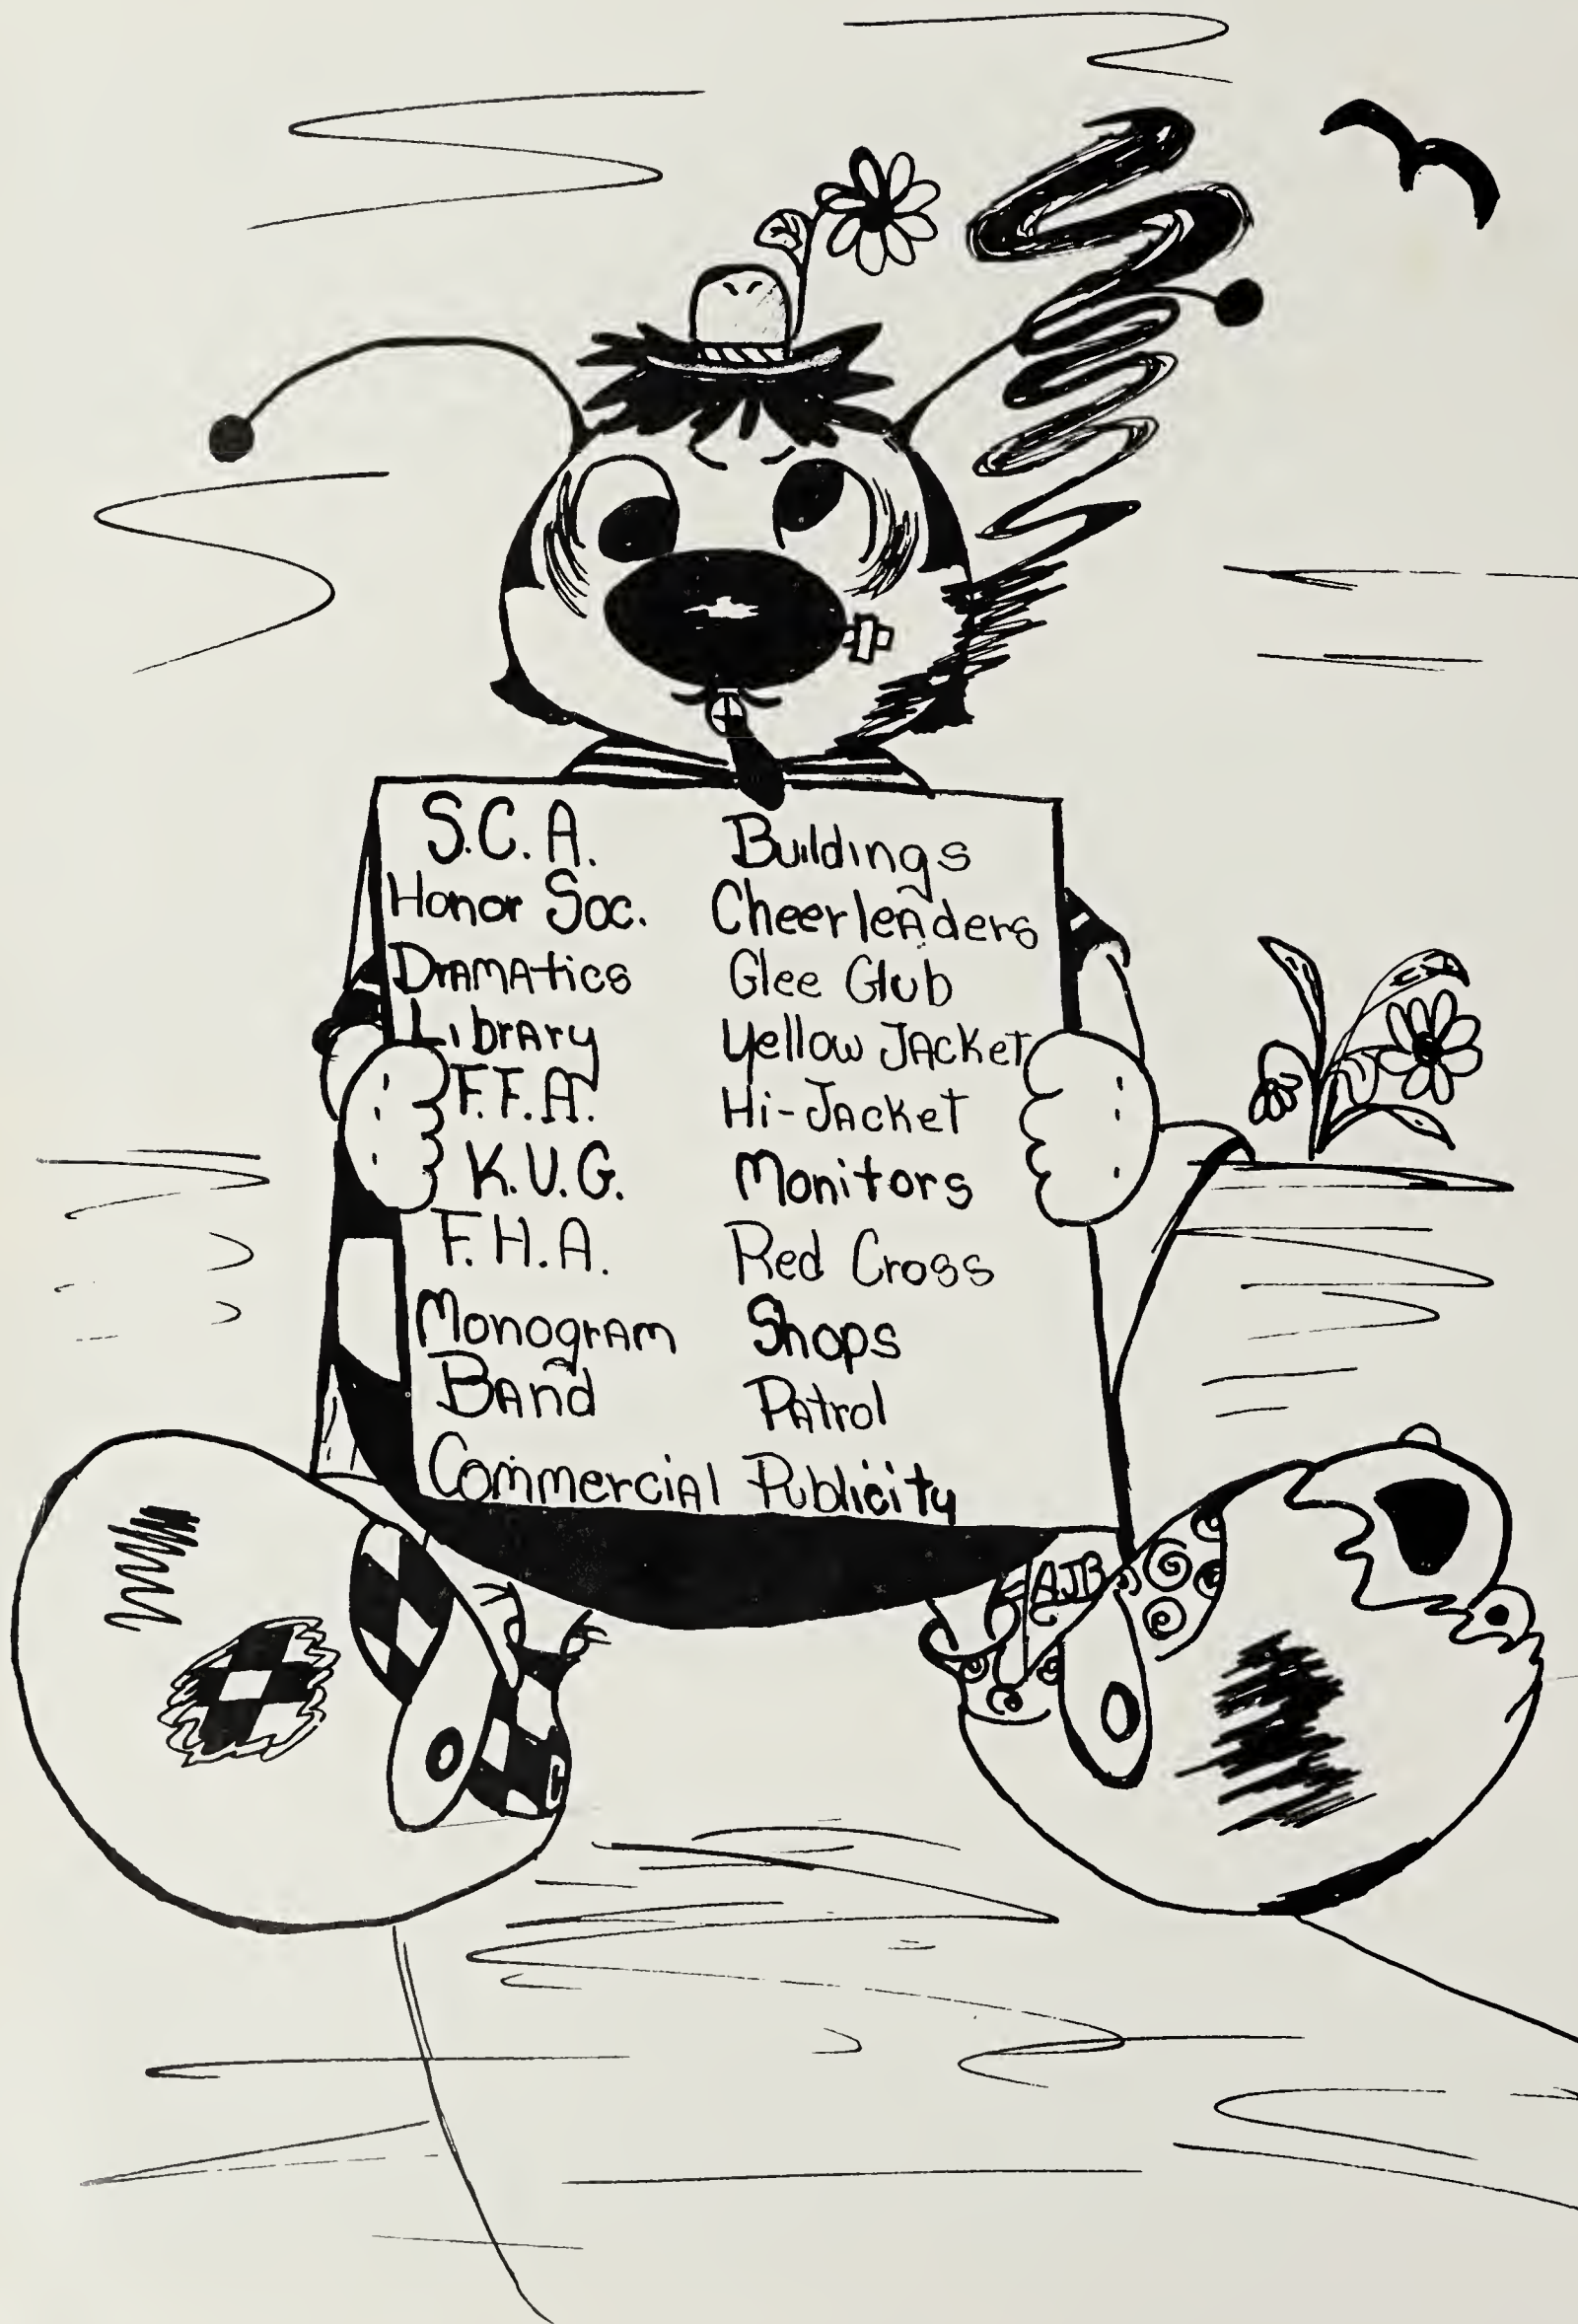 S.C.A.
Honor Soc.
DrAmAtics
LibrAry
F.F.A.
K.V.G.
F.H.A.
MonogrAm
BAnd
CommerciAl
Buildings
CheerleAders
Glee Glub
Yellow JAcket
Hi-JAcket
Monitors
Red Cross
Shops
PAtrol
Publicity
AJB